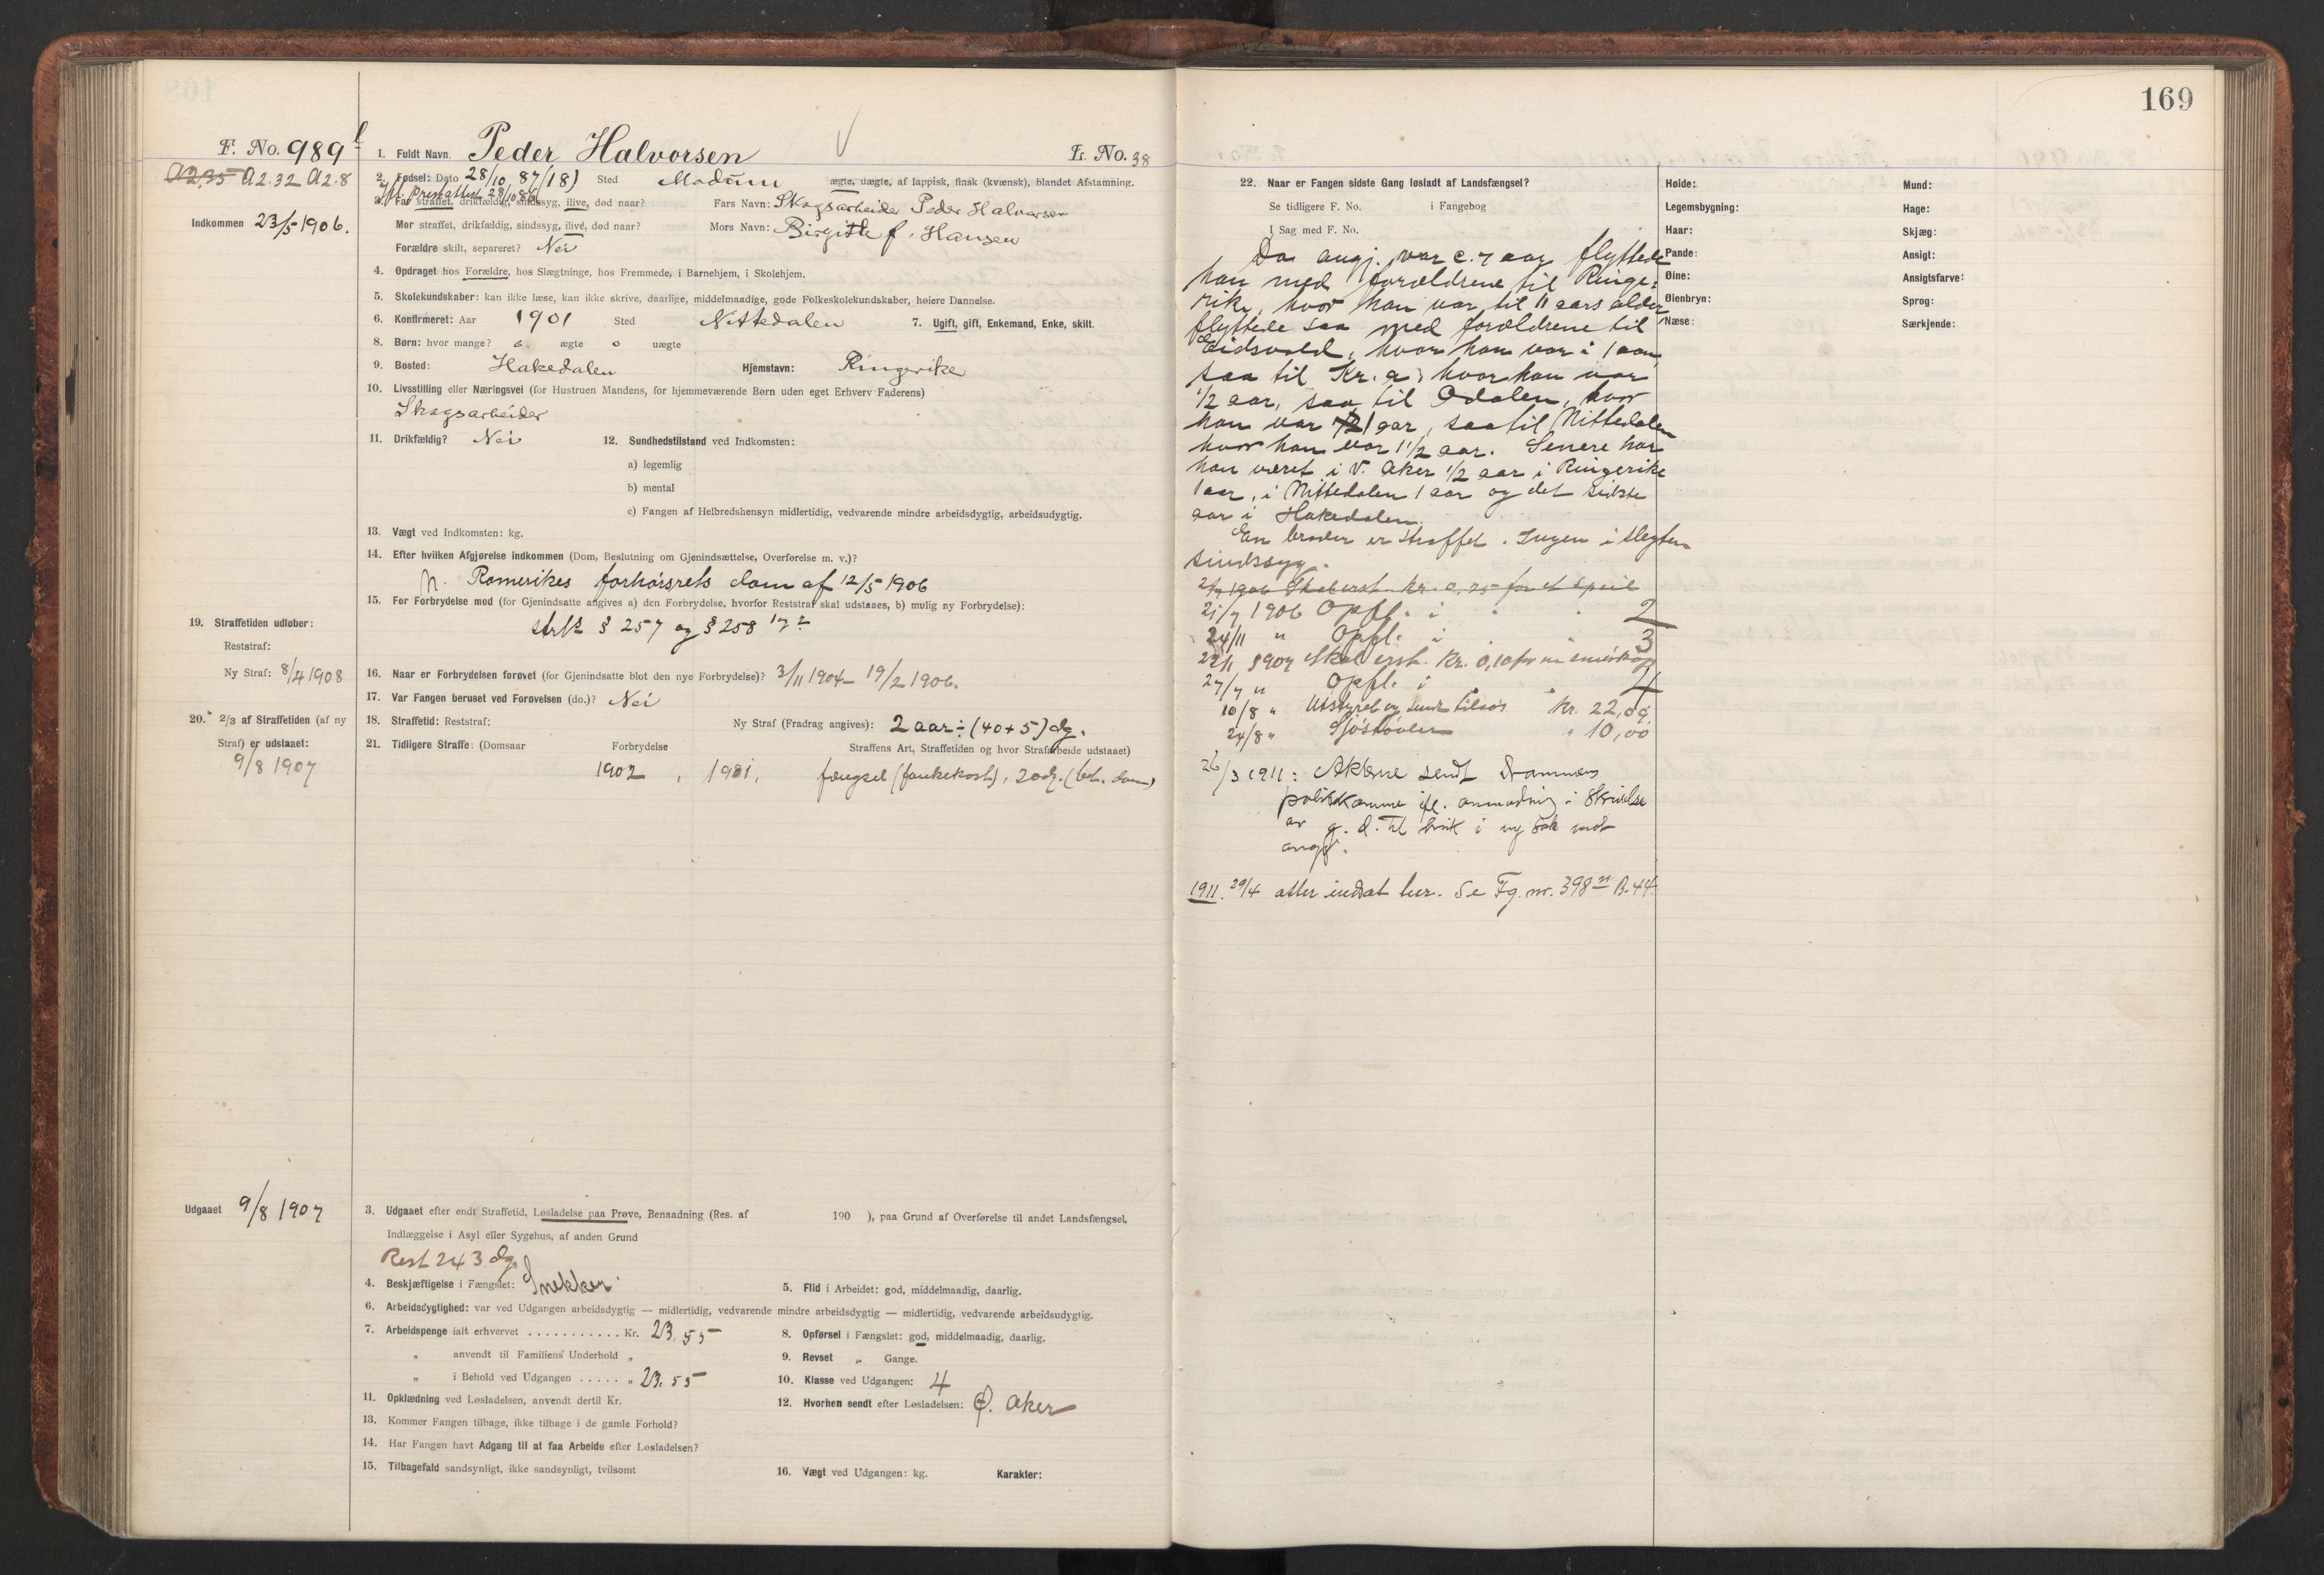 169
F. No. 989
A2.35 A2.32 A2.8
Indkommen 23/5 1906.
1. Fuldt Navn. Peder Halvorsen
L. No. 38
2. Fødsel: Dato 28/10 87 (18) Sted Modum ægte, uægte, af lappisk, finsk (kvænsk), blandet Afstamning.
28/10 86
3. Far straffet, drikfældig, sindssyg, ilive, død naar? Fars Navn: Skogsarbeider Peder Halvorsen
Mor straffet, drikfældig, sindssyg, ilive, død naar? Mors Navn: Birgitte f. Hansen
Forældre skilt, separeret? Nei
4. Opdraget hos Forældre, hos Slægtninge, hos Fremmede, i Barnehjem, i Skolehjem.
5. Skolekundskaber: kan ikke læse, kan ikke skrive, daarlige, middelmaadige, gode Folkeskolekundskaber, høiere Dannelse.
6. Konfirmeret: Aar 1901 Sted Nittedalen 7. Ugift, gift, Enkemand, Enke, skilt.
8. Børn: hvor mange? o. ægte o uægte
9. Bosted: Hakedalen Hjemstavn: Ringerike
10. Livsstilling eller Næringsvei (for Hustruen Mandens, for hjemmeværende Børn uden eget Erhverv Faderens)
Skogsarbeider
11. Drikfældig? Nei 12. Sundhedstilstand ved Indkomsten:
a) legemlig
b) mental
c) Fangen af Helbredshensyn midlertidig, vedvarende mindre arbeidsdygtig, arbeidsudygtig.
13. Vægt ved Indkomsten: kg.
14. Efter hvilken Afgjørelse indkommen (Dom, Beslutning om Gjenindsættelse, Overførelse m. v.)?
N. Romerikes forhørsrets dom af 12/5 1906
15. For Forbrydelse mod (for Gjenindsatte angives a) den Forbrydelse, hvorfor Reststraf skal udstaaes, b) mulig ny Forbrydelse):
§ 257 og § 258
19. Straffetiden udløber:
Reststraf:
Ny Straf: 8/4 1908
16. Naar er Forbrydelsen forøvet (for Gjenindsatte blot den nye Forbrydelse)? 3/11 1904 - 19/2 1906.
17. Var Fangen beruset ved Forøvelsen (do.)? Nei
20. 2/3 af Straffetiden (af ny
Straf) er udstaaet:
9/8 1907
18. Straffetid: Reststraf: Ny Straf (Fradrag angives): 2 aar ÷ (40+5) dg.
21. Tidligere Straffe: (Domsaar Forbrydelse Straffens Art, Straffetiden og hvor Strafarbeide udstaaet)
1902 , fængsel (fankekost), 20 dg. (bet. dom)
Udgaaet 9/8 1907
3. Udgaaet efter endt Straffetid, Løsladelse paa Prøve, Benaadning (Res. af 190 ), paa Grund af Overførelse til andet Landsfængsel,
Indlæggelse i Asyl eller Sygehus, af anden Grund
Rest 243 dg.
4. Beskjæftigelse i Fængslet: Snekker 5. Flid i Arbeidet: god, middelmaadig, daarlig.
6. Arbeidsdygtighed: var ved Udgangen arbeidsdygtig — midlertidig, vedvarende mindre arbeidsdygtig — midlertidig, vedvarende arbeidsudygtig.
7. Arbeidspenge ialt erhvervet ........... Kr. 23.55 8. Opførsel i Fængslet: god, middelmaadig, daarlig.
„ anvendt til Familiens Underhold „ 9. Revset „ Gange.
„ i Behold ved Udgangen ..... „ 23.55 10. Klasse ved Udgangen: 4
11. Opklædning ved Løsladelsen, anvendt dertil Kr. 12. Hvorhen sendt efter Løsladelsen: Ø. Aker
13. Kommer Fangen tilbage, ikke tilbage i de gamle Forhold?
14. Har Fangen havt Adgang til at faa Arbeide efter Løsladelsen?
15. Tilbagefald sandsynligt, ikke sandsynligt, tvilsomt 16. Vægt ved Udgangen: kg. Karakter:
22. Naar er Fangen sidste Gang løsladt af Landsfængsel?
Se tidligere F. No. i Fangebog
I Sag med F. No.
Da angj. var c. 7 aar flyttede
han med forældrene til Ringe-
rike, hvor han var til 11 aars alder
flyttede saa med forældrene til
Eidsvold, hvor han var i 1 aar,
saa til Kr.a. hvor han var
1/2 aar, saa til Odalen, hvor
han var 1 aar, saa til Nittedalen
hvor han var 1 1/2 aar. Senere har
han været i V. Aker 1/2 aar i Ringerike
1 aar, i Nittedalen 1 aar og det sidste
aar i Hakedalen.
En broder er straffet. Ingen i slegten
sindssyg.
2/7 1906 Skal erst. kr. 0,25 for et speil
21/7 1906 Opfl. i " " 2
24/11 " Opfl. i " " 3
22/1 1907 Skal erst. Kr. 0,10 for en smørkop
27/7 " Opfl. i " " 4
10/8 " Utstyret og sendt tilsös Kr. 22,09.
24/8 " Sjöstövler " 10,00
26/3 1911: Akterne sendt Drammens
politikamme ifl. anmodning i Skrivelse
av g. d. til bruk i ny sak mot
angj.
1911. 29/4 atter indsat her. Se Fg. nr. 398 B. 44.
Høide: Mund:
Legemsbygning: Hage:
Haar: Skjæg:
Pande: Ansigt:
Øine: Ansigtsfarve:
Øienbryn: Sprog:
Næse: Særkjende: